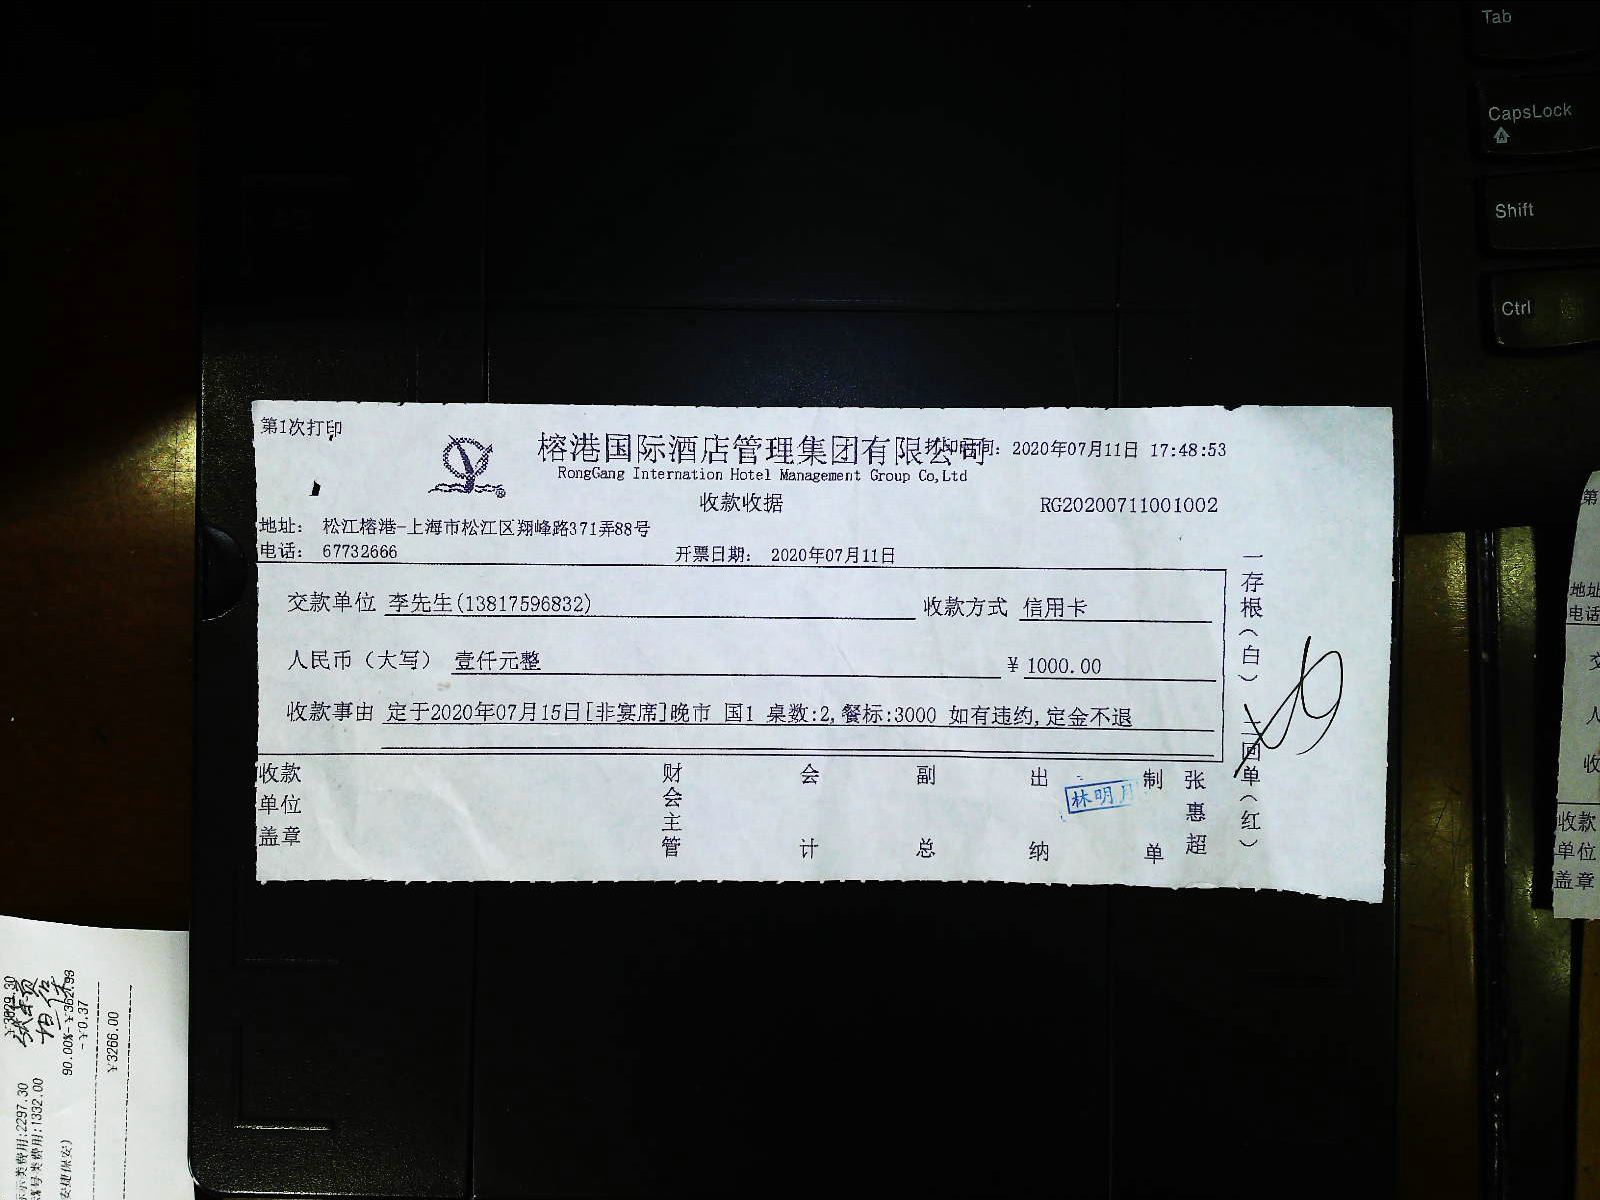 Tab
CapsLock
Shift
Ctrl
第1次打印
榕港国际酒店管理集团有限公司
打印时间: 2020年07月11日 17:48:53
RongGang Internation Hotel Management Group Co,Ltd
收款收据
RG20200711001002
地址: 松江榕港-上海市松江区翔峰路371弄88号
电话: 67732666
开票日期: 2020年07月11日
交款单位 李先生(13817596832)
收款方式 信用卡
人民币（大写） 壹仟元整
¥ 1000.00
收款事由 定于2020年07月15日[非宴席]晚市 国1 桌数:2,餐标:3000 如有违约,定金不退
收款单位盖章
财会主管
会计
副总
出纳
林明月
制单
张惠超
一存根(白)
二回单(红)
第
地址
电话
交
人
收
收款
单位
盖章
90.00%-¥362.93
-¥0.37
¥3266.00
类费用:2297.30
类费用:1332.00